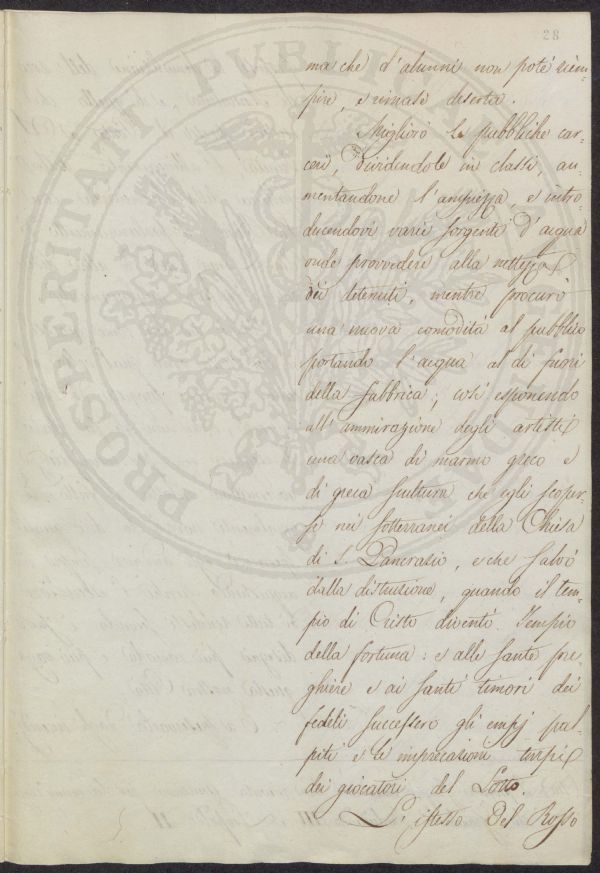 28
ma che d'alunni non poté riem-
pire, e rimase deserta.
Migliorò le pubbliche car-
ceri, dividendole in classi, au-
mentandone l'ampiezza, e intro-
ducendovi varie sorgenti d'acqua
onde provvedere alla nettezza
dei detenuti, mentre procurò
una nuova comodità al pubblico
portando l'acqua al di fuori
della fabbrica; così esponendo
all'ammirazione degli artisti
una vasca di marmo greco e
di greca scultura che egli scoper-
se nei sotterranei della Chiesa
di S. Pancrazio, e che salvò
dalla distruzione, quando il tem-
pio di Cristo diventò Tempio
della fortuna: e alle sante pre-
ghiere e ai santi timori dei
fedeli successero gli empj pal-
piti e le imprecazioni turpi
dei giocatori del Lotto.
L'istesso Del Rosso
PROSPERITATI PVBLICAE